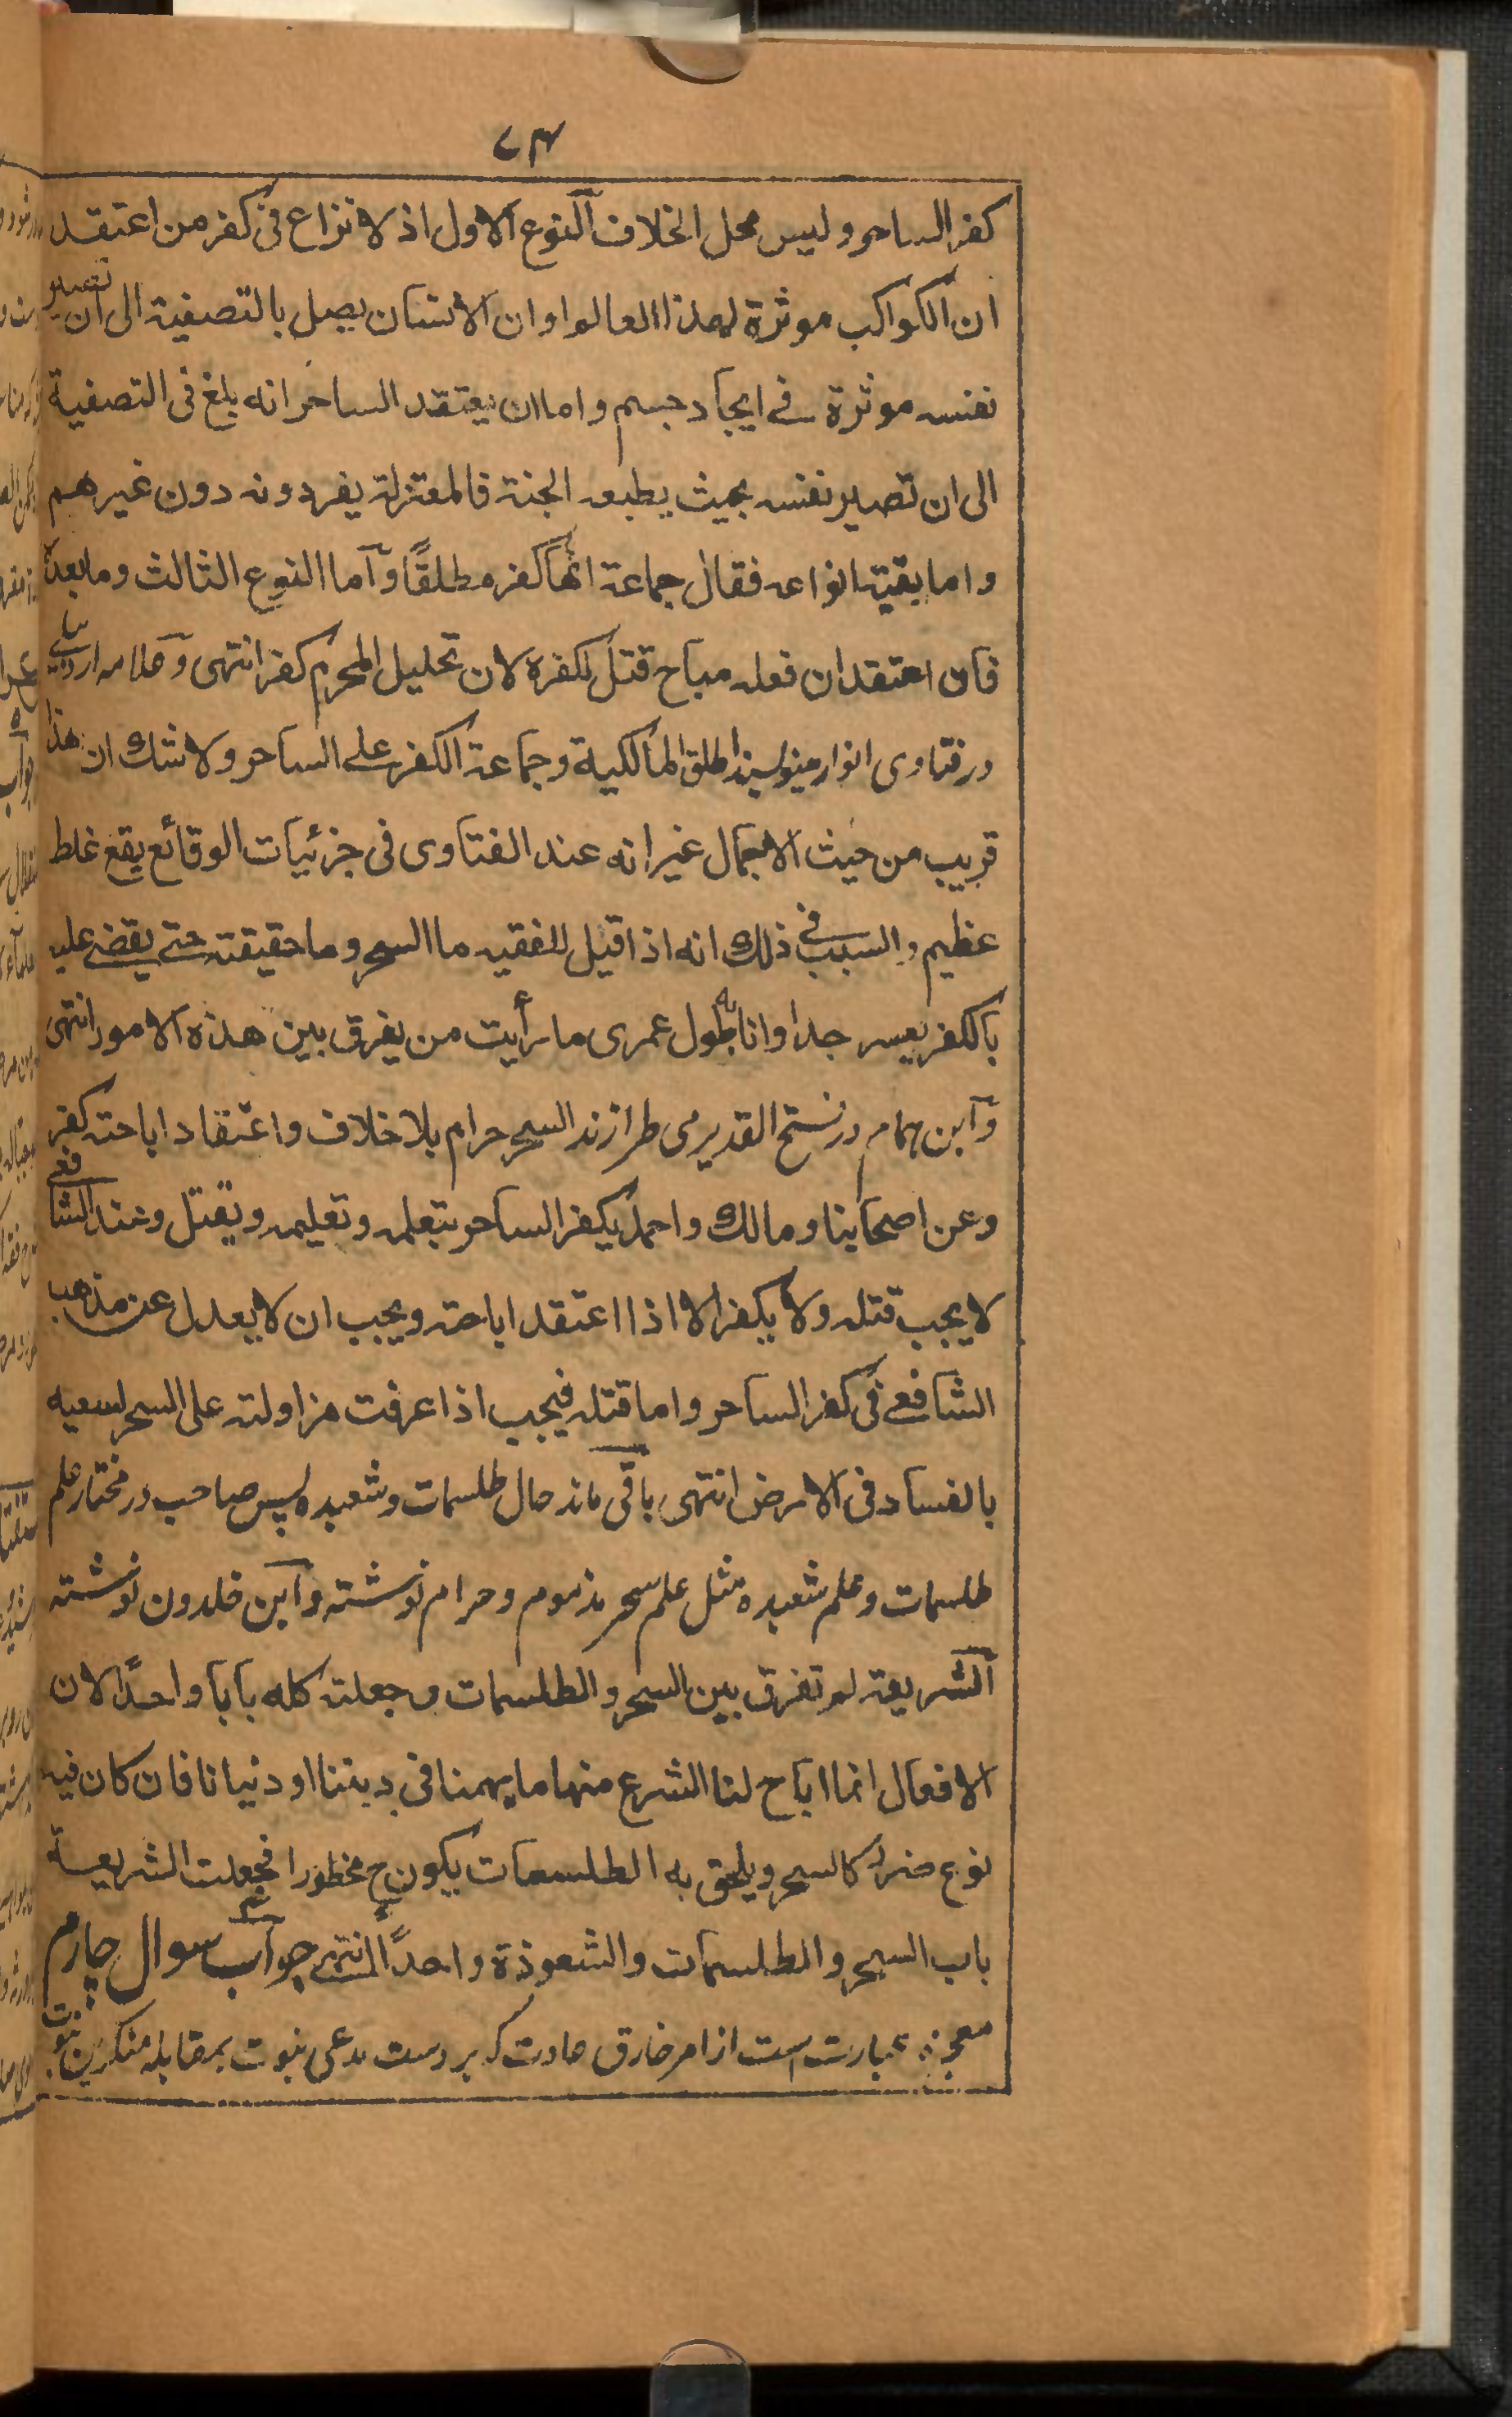 ۷۴
كفر الساحر وليس محل الخلاف النوع الاول اذ لا نزاع فى كفر من اعتقد
ان الكواكب موثرة لهذا العالم او ان الانسان يصل بالتصفية الى ان تصير
نفسه موثرة فى ايجاد جسم واما ان يعتقد الساحر انه بلغ فى التصفية
الى ان تصير نفسه بحيث يطيعه الجنة فالمعتزلة يفردونه دون غيرهم
واما بقية انواعه فقال جماعة انها كفر مطلقًا وآما النوع الثالث وما بعده
فان اعتقد ان فعله مباح قتل لكفره لان تحليل المحرم كفر انتهى وعلامه اردبيلى
در فتاوى انوار مينويسند اطلق المالكية وجماعة الكفر على الساحر ولا شك ان هذا
قريب من حيث الاجمال غير انه عند الفتاوى فى جزئيات الوقائع يقع غلط
عظيم والسبب فى ذلك انه اذا قيل للفقيه ما السحر وما حقيقته حتى يقضى عليه
بالكفر يعسر جدا وانا بطول عمرى ما رأيت من يفرق بين هذه الامور انتهى
وآبن همام در فتح القدير مى طرازند السحر حرام بلا خلاف واعتقاد اباحته كفر
وعن اصحابنا ومالك واحمد يكفر الساحر بتعلمه وتعليمه ويقتل وعند الشافعى
لا يجب قتله ولا يكفر الا اذا اعتقد اباحته ويجب ان لا يعدل عن مذهب
الشافعى فى كفر الساحر واما قتله فيجب اذا عرفت مزاولته على السحر لسعيه
بالفساد فى الارض انتهى باقى ماند حال طلسمات وشعبده پس صاحب در مختار علم
طلسمات وعلم شعبده مثل علم سحر مذموم وحرام نوشته وآبن خلدون نوشته
آلشريعة لم تفرق بين السحر والطلسمات وجعلته كله بابا واحدًا لان
الافعال انما اباح لنا الشرع منها ما يهمنا فى ديننا او دنيانا فان كان فيه
نوع ضرر كالسحر ويلحق به الطلسمات يكون ح محظورا فجعلت الشريعة
باب السحر والطلسمات والشعوذة واحدًا انتهى جواب سوال چارم
معجزه عبارت ست از امر خارق عادت كه بر دست مدعى نبوت بمقابله منكرين نبوت